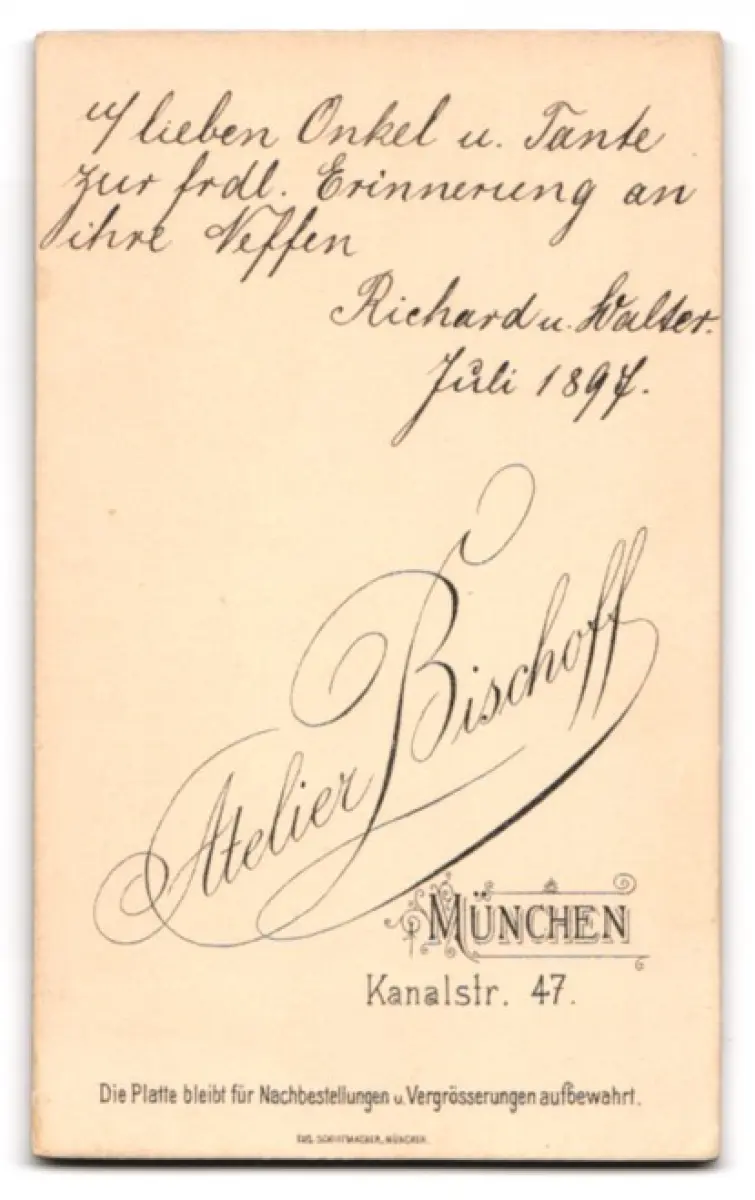 lieben Onkel u. Tante
zur frdl. Erinnerung an
ihre Neffen
Richard u. Walter.
Juli 1897.
Atelier Bischoff
MÜNCHEN
Kanalstr. 47.
Die Platte bleibt für Nachbestellungen u. Vergrösserungen aufbewahrt.
MÜNCHEN.